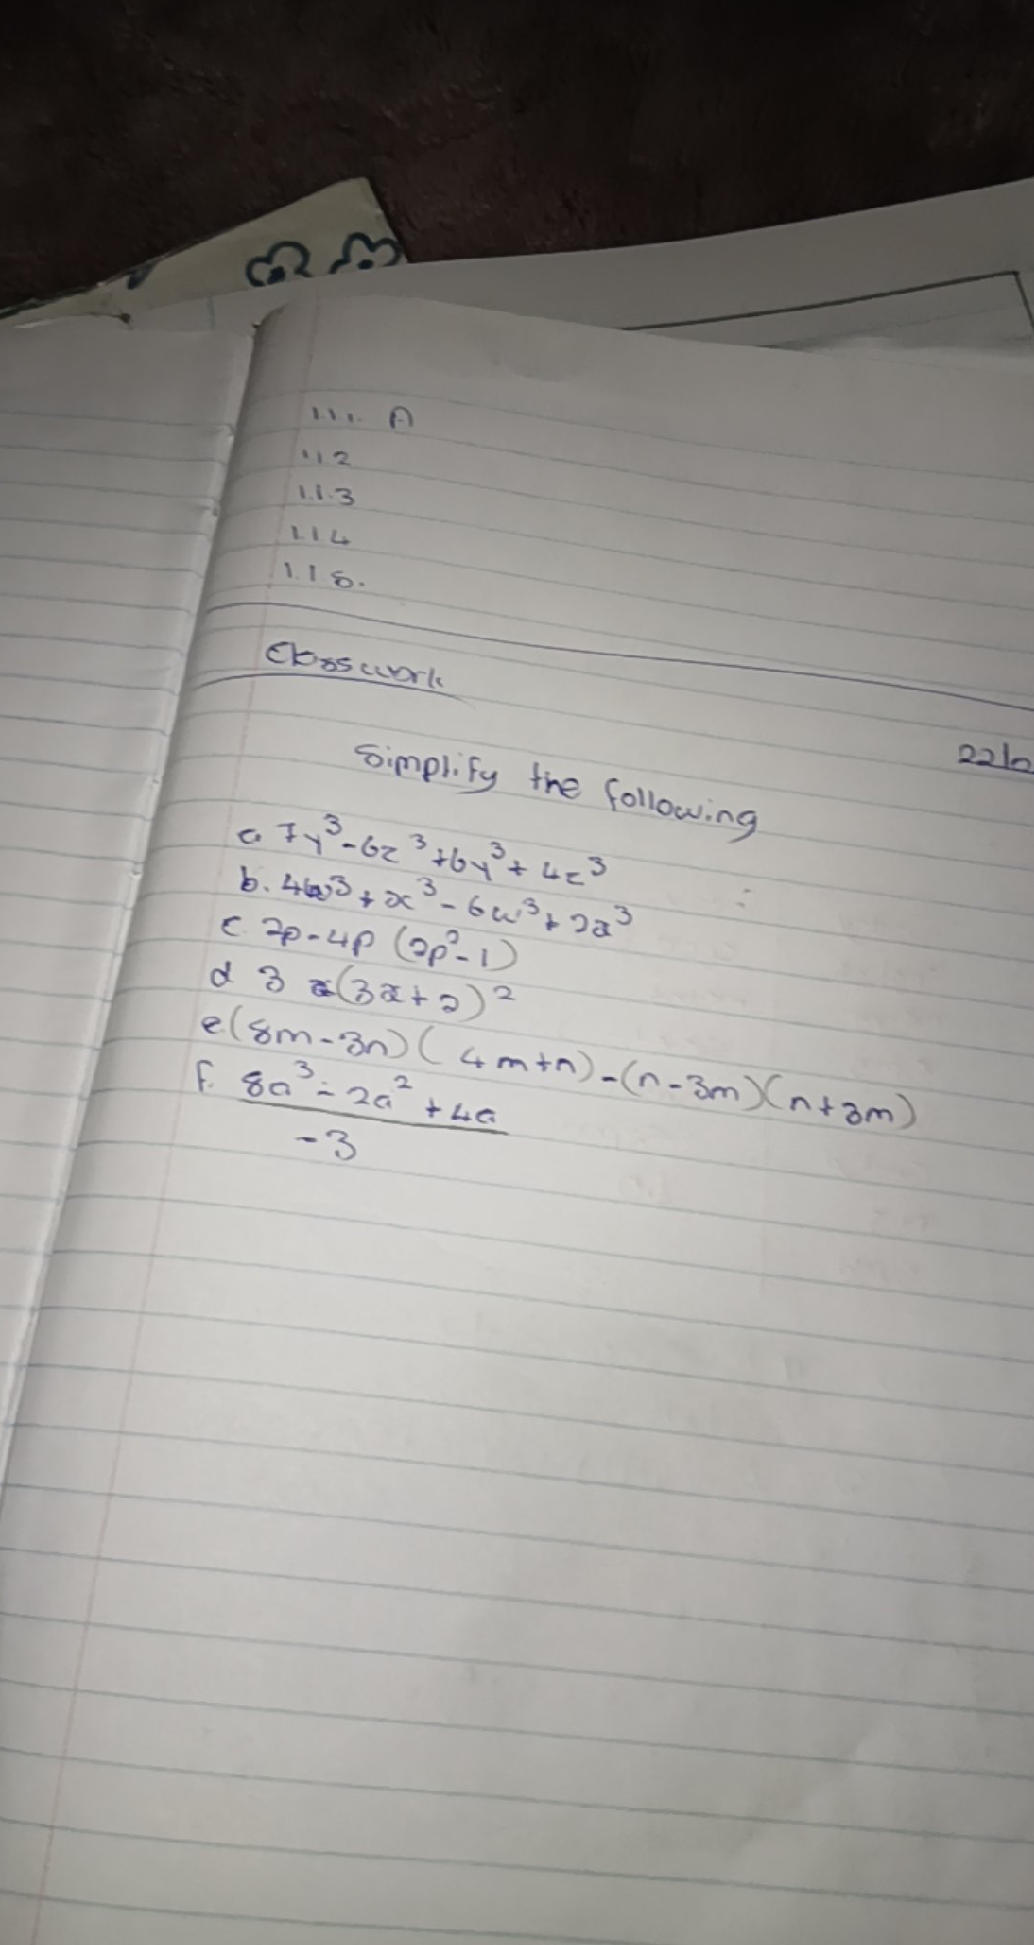 1.1.1. A
1.1.2
1.1.3
1.1.4
1.1.5.
Classwork
22/0
Simplify the following
a. 7y³ - 6z³ + 6y³ + 4z³
b. 4w³ + x³ - 6w³ + 2x³
c. 2p - 4p (2p² - 1)
d 3x(3x + 2)²
e. (8m - 3n)(4m + n) - (n - 3m)(n + 3m)
f. 8a³ - 2a² + 4a
-3